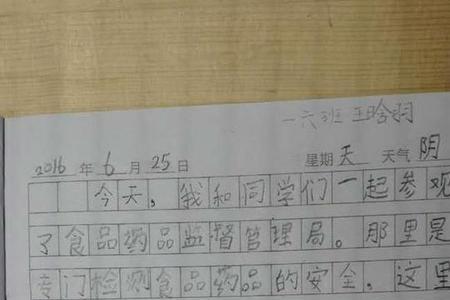 一六班 王晗羽
2016 年 6 月 25 日 星期 天 天气 阴
今天,我和同学们一起参观
了食品药品监督管理局。那里是
专门检测食品药品的安全。这里